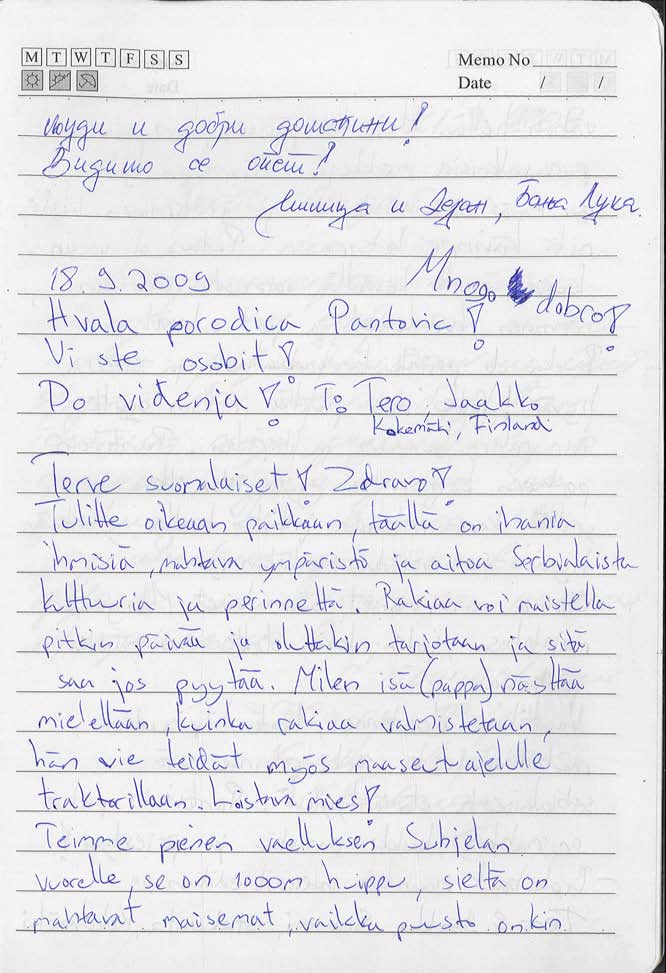 M T W T F S S
Memo No
Date / /
људи и добри домаћини!
Видимо се опет!
Милица и Дејан, Бања Лука.
18.9.2009
Mnogo dobro!
Hvala porodica Pantovic!
Vi ste osobit!
Do viđenja! T: Tero, Jaakko
Kokemäki, Finland
Terve suomalaiset! Zdravo!
Tulitte oikeaan paikkaan, täällä on ihania
ihmisiä, mahtava ympäristö ja aitoa Serbialaista
kulttuuria ja perinnettä. Rakiaa voi maistella
pitkin päivää ja oluttakin tarjotaan ja sitä
saa jos pyytää. Milen isä (pappa) näyttää
mielellään, kuinka rakiaa valmistetaan,
hän vie teidät myös maaseutuajelulle
traktorillaan. Loistava mies!
Teimme pienen vaelluksen Subjelan
vuorelle, se on 1000m huippu, sieltä on
mahtavat maisemat, vaikka puusto onkin